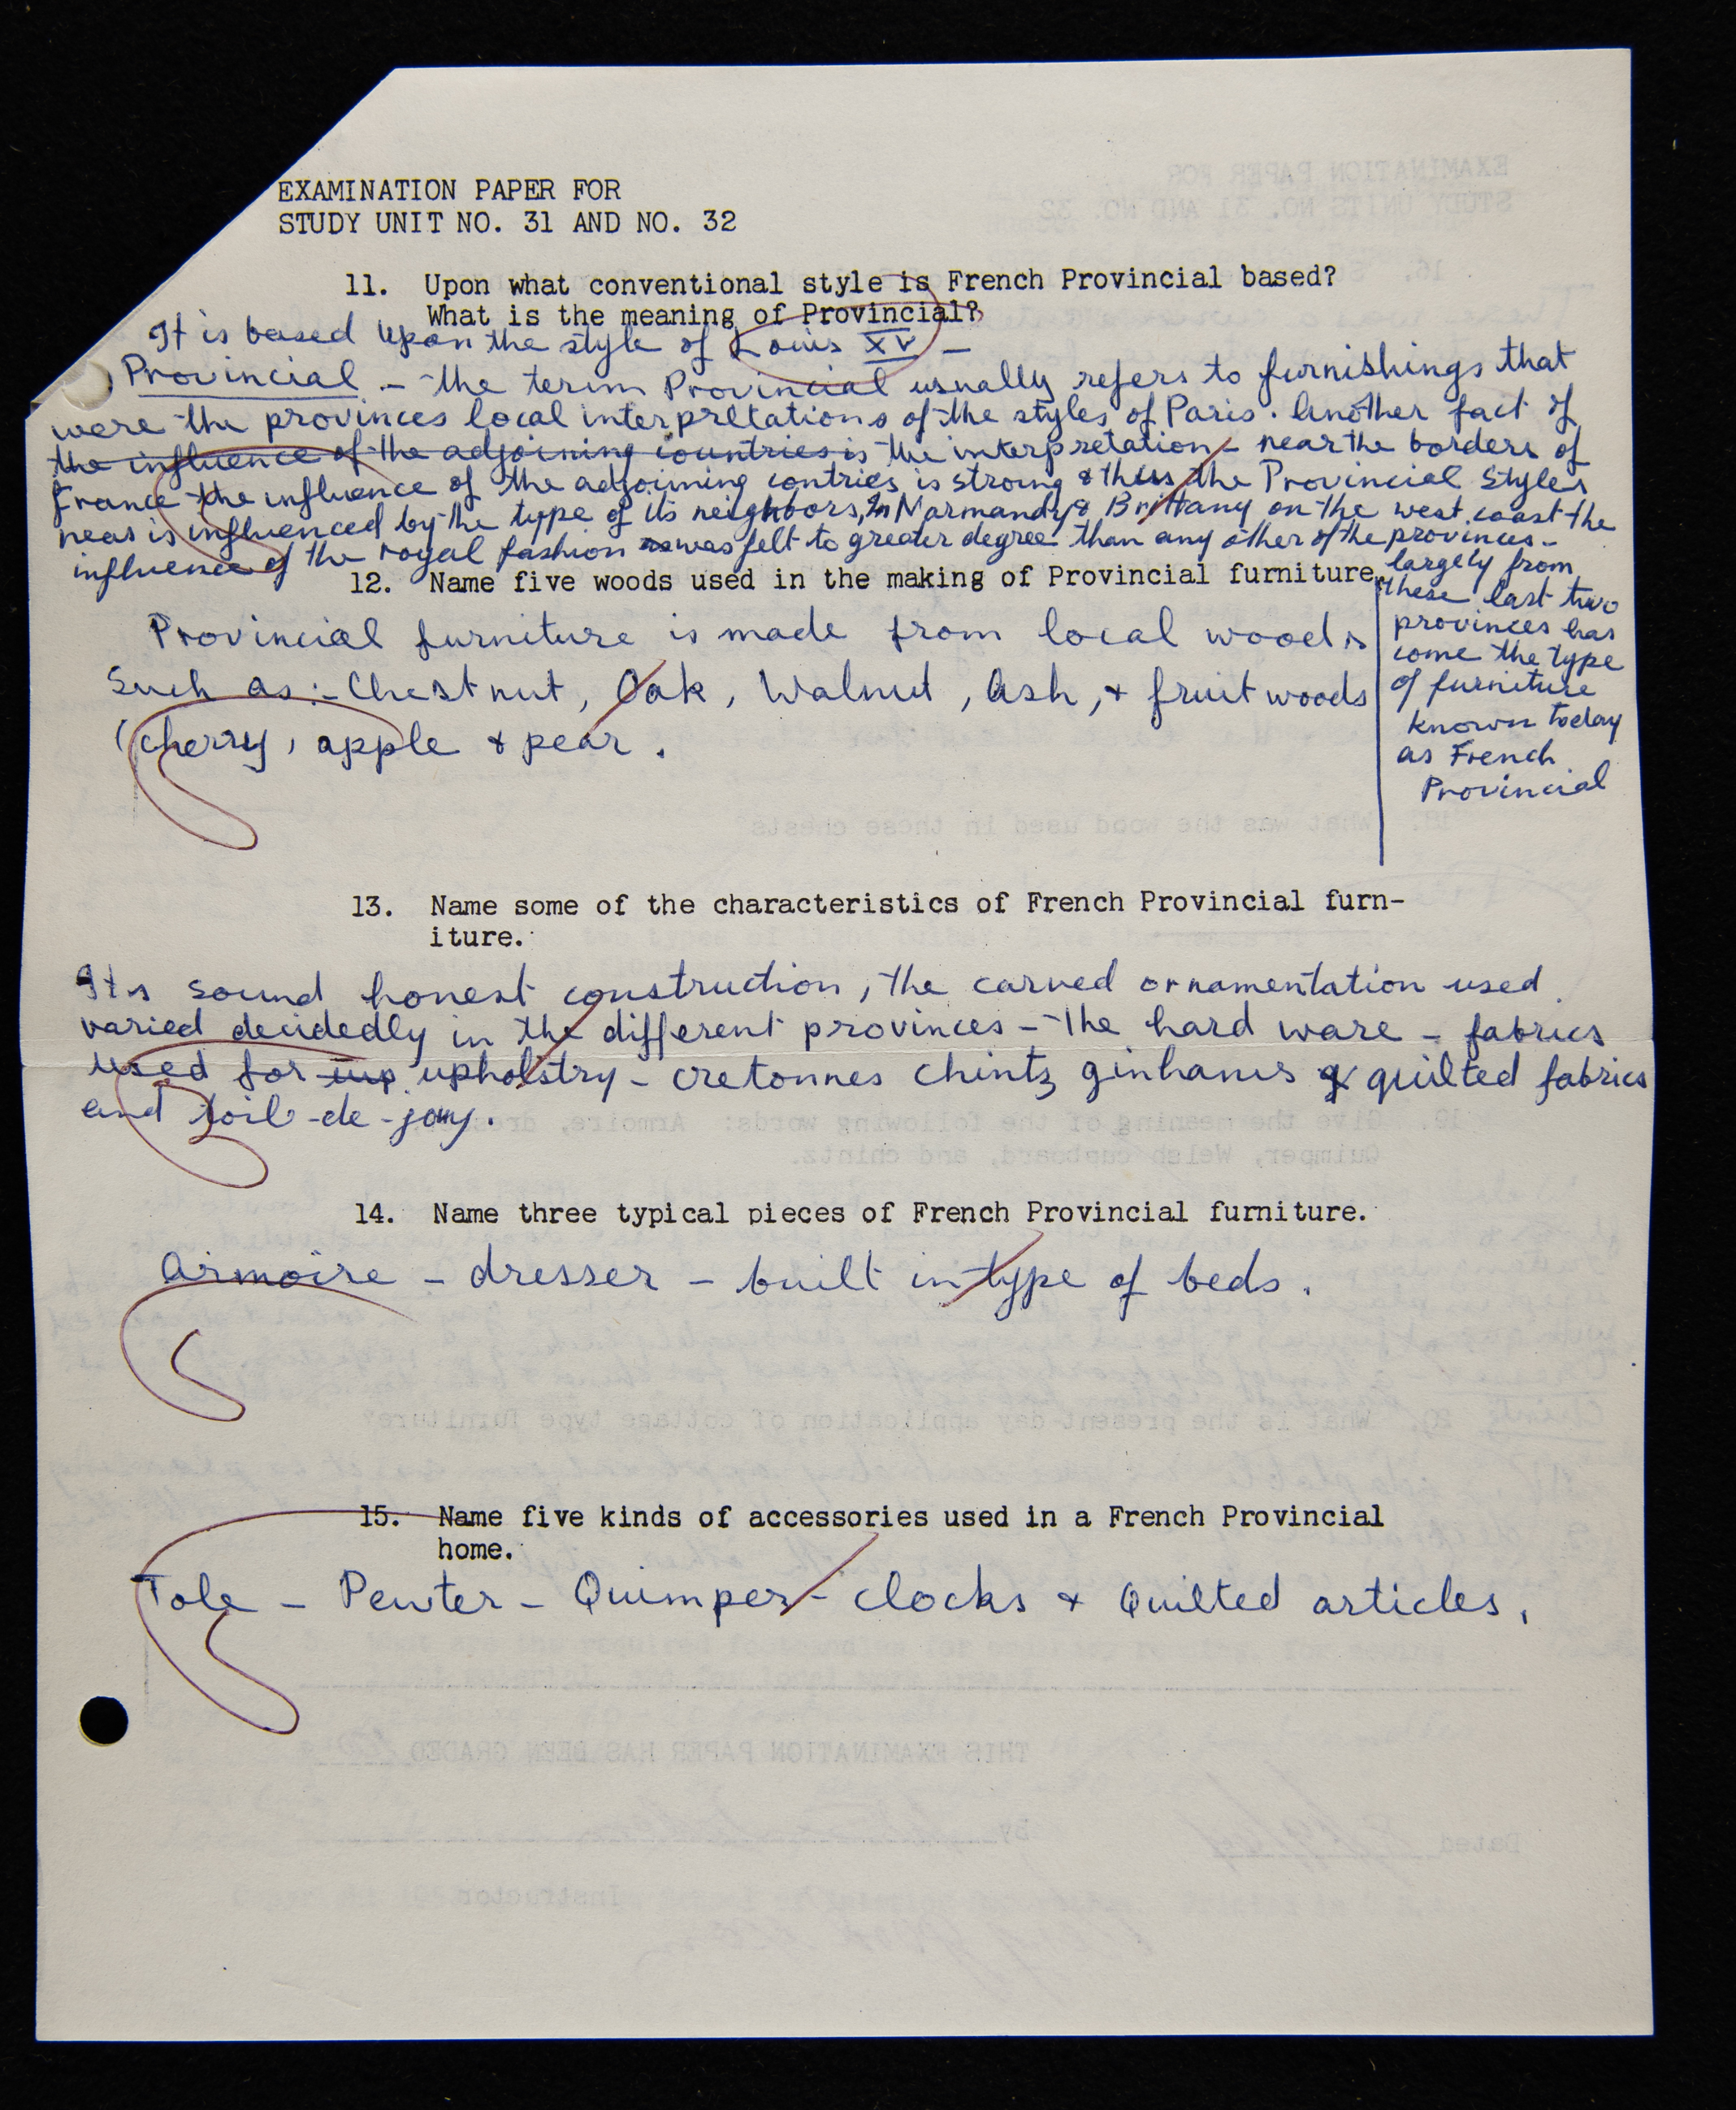 EXAMINATION PAPER FOR
STUDY UNIT NO. 31 AND NO. 32
11. Upon what conventional style is French Provincial based?
What is the meaning of Provincial?
It is based upon the style of Louis XV –
Provincial – the term Provincial usually refers to furnishings that
were the provinces local interpretations of the styles of Paris. Another fact of
the influence of the adjoining countries is the interpretation – near the borders of
France the influence of the adjoining contries is strong & thus the Provincial Styles
near is influenced by the type of its neighbors, In Normandy & Brittany on the west coast the
influence of the royal fashion was felt to greater degree than any other of the provinces –
largely from
these last two
provinces has
come the type
of furniture
known today
as French
Provincial
12. Name five woods used in the making of Provincial furniture.
Provincial furniture is made from local woods
Such as :- Chestnut, Oak, Walnut, Ash, + fruit woods
(cherry, apple & pear.
13. Name some of the characteristics of French Provincial furn-
iture.
Its sound honest construction, the carved ornamentation used
varied decidedly in the different provinces – the hard ware – fabrics
used for up upholstry – cretonnes chintz ginhams & quilted fabrics
and toil-de-jouy.
14. Name three typical pieces of French Provincial furniture.
Armoire – dresser – built in type of beds.
15. Name five kinds of accessories used in a French Provincial
home.
Tole – Pewter – Quimper – clocks & Quilted articles.